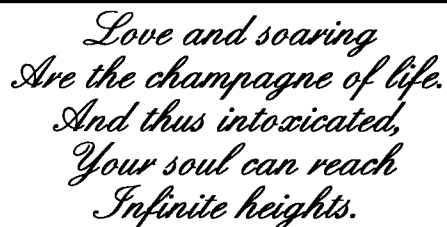 Love and soaring
Are the champagne of life.
And thus intoxicated,
Your soul can reach
Infinite heights.